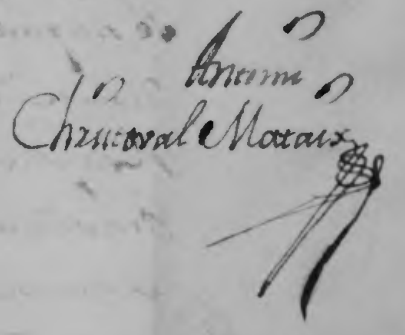 Antoni
Christoval Mataix